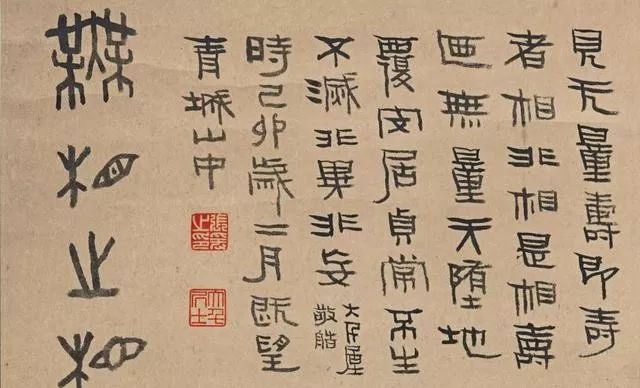 見无量壽即壽
者相非相是相壽
無量天墮地
覆居貞常不生
不滅非異非妄
時己卯歲二月既望
青城山中
張爰之印
大千居士
無相之相